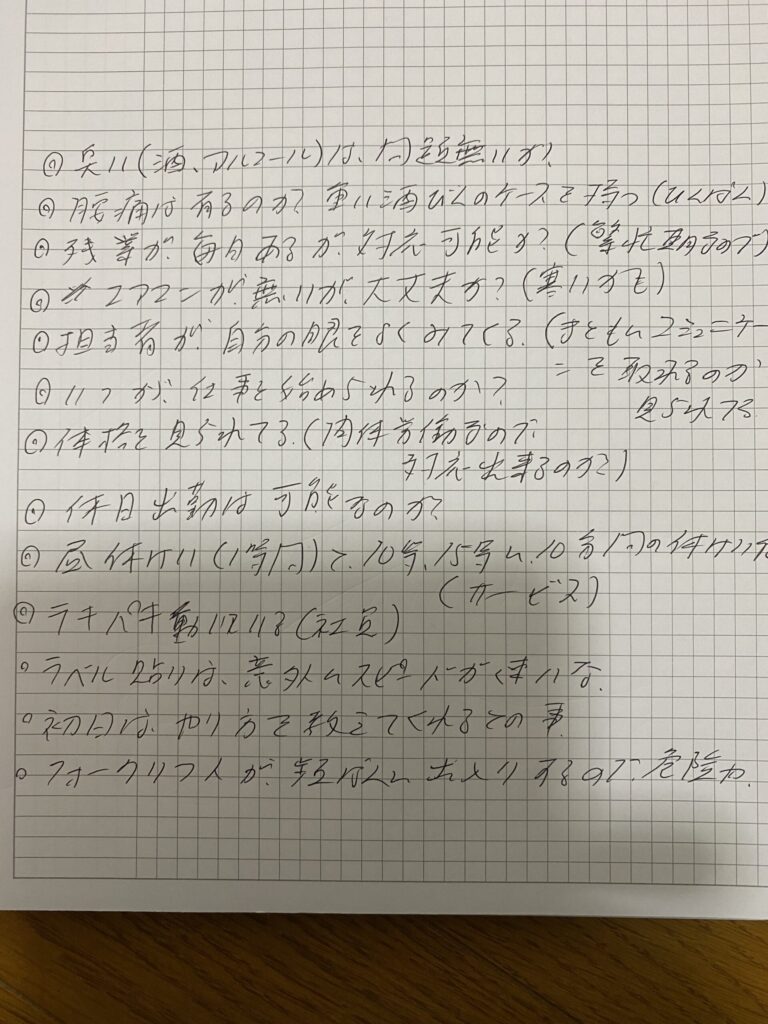 ◎臭い(酒、アルコール)は、問題無いか?
◎腰痛は有るのか?重い酒びんのケースを持つ(ひんぱん)
◎残業が、毎日あるが、対応可能か?(繁忙期なので)
◎エアコンが、無いが、大丈夫か?(寒いかも)
◎担当者が、自分の眼をよくみてくる。(まともにコミュニケー
ーを取れるのか
◎いつから、仕事を始められるのか?
見られてる
◎体格を見られてる。(肉体労働なので、
対応出来るのか?)
◎休日出勤は可能なのか?
◎昼休けい(1時間)と、10時、15時に、10分間の休けい
(サービス)
◎テキパキ動いている(社員)
○ラベル貼りは、意外にスピードが速いな。
○初日は、やり方を教えてくれるとの事。
○フォークリフトが、頻ぱんに出入りするので、危険か。